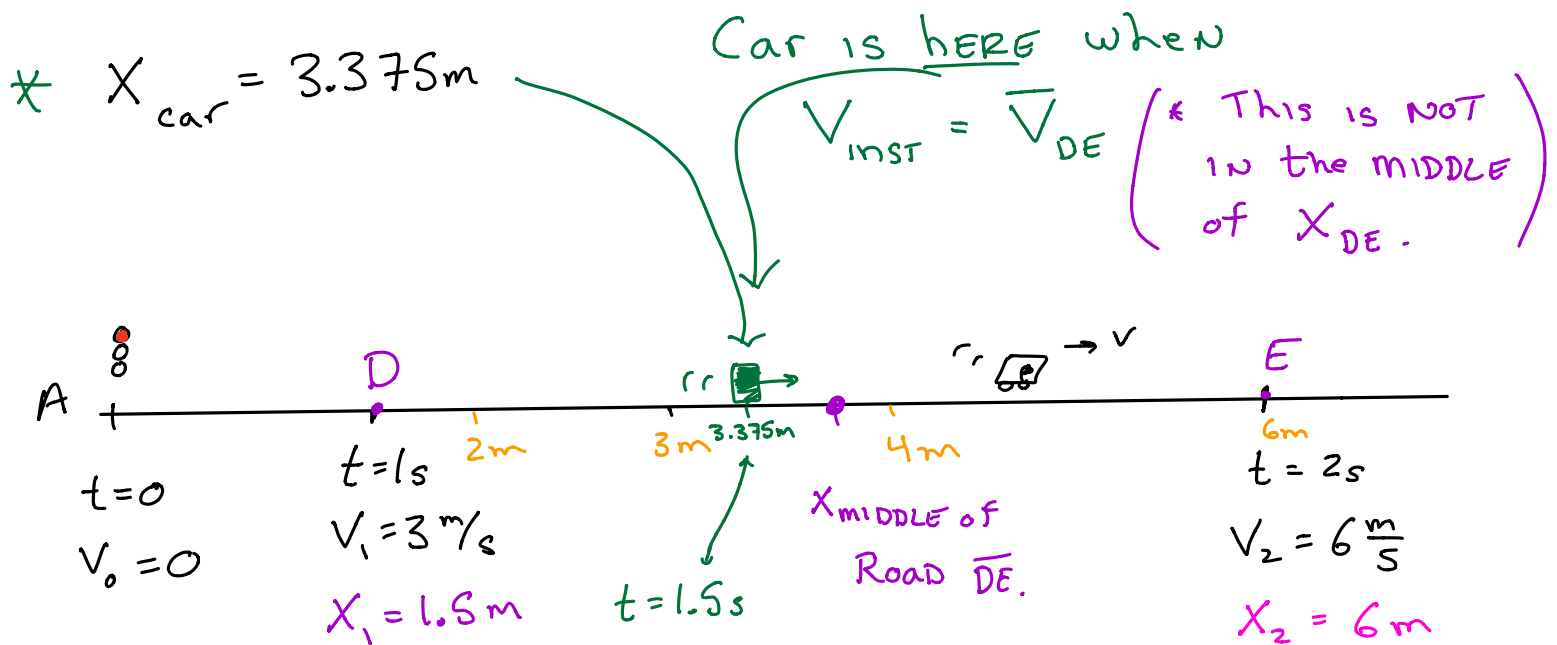 * Xcar = 3.375m
Car is HERE when
VINST = V̅DE
(* This is NOT
IN the MIDDLE
of XDE.)
A
D
r r
r r → v
E
2m
3m
3.375m
4m
6m
t=0
V₀=0
t=1s
V₁=3 m/s
X₁=1.5m
t=1.5s
XMIDDLE of
ROAD D̅E̅.
t = 2s
V₂ = 6 m/s
X₂ = 6m